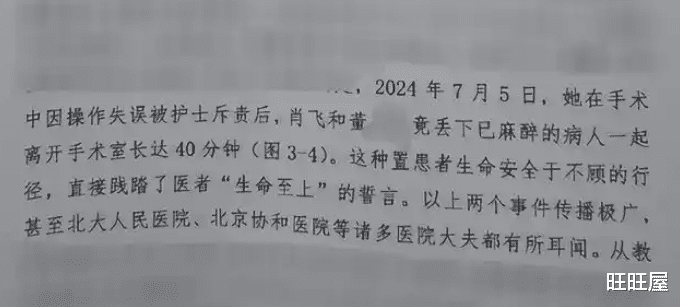 ，2024年7月5日，她在手术
中因操作失误被护士斥责后，肖飞和董 竟丢下已麻醉的病人一起
离开手术室长达40分钟（图3-4）。这种置患者生命安全于不顾的行
径，直接践踏了医者“生命至上”的誓言。以上两个事件传播极广，
甚至北大人民医院、北京协和医院等诸多医院大夫都有所耳闻。从教
旺旺屋